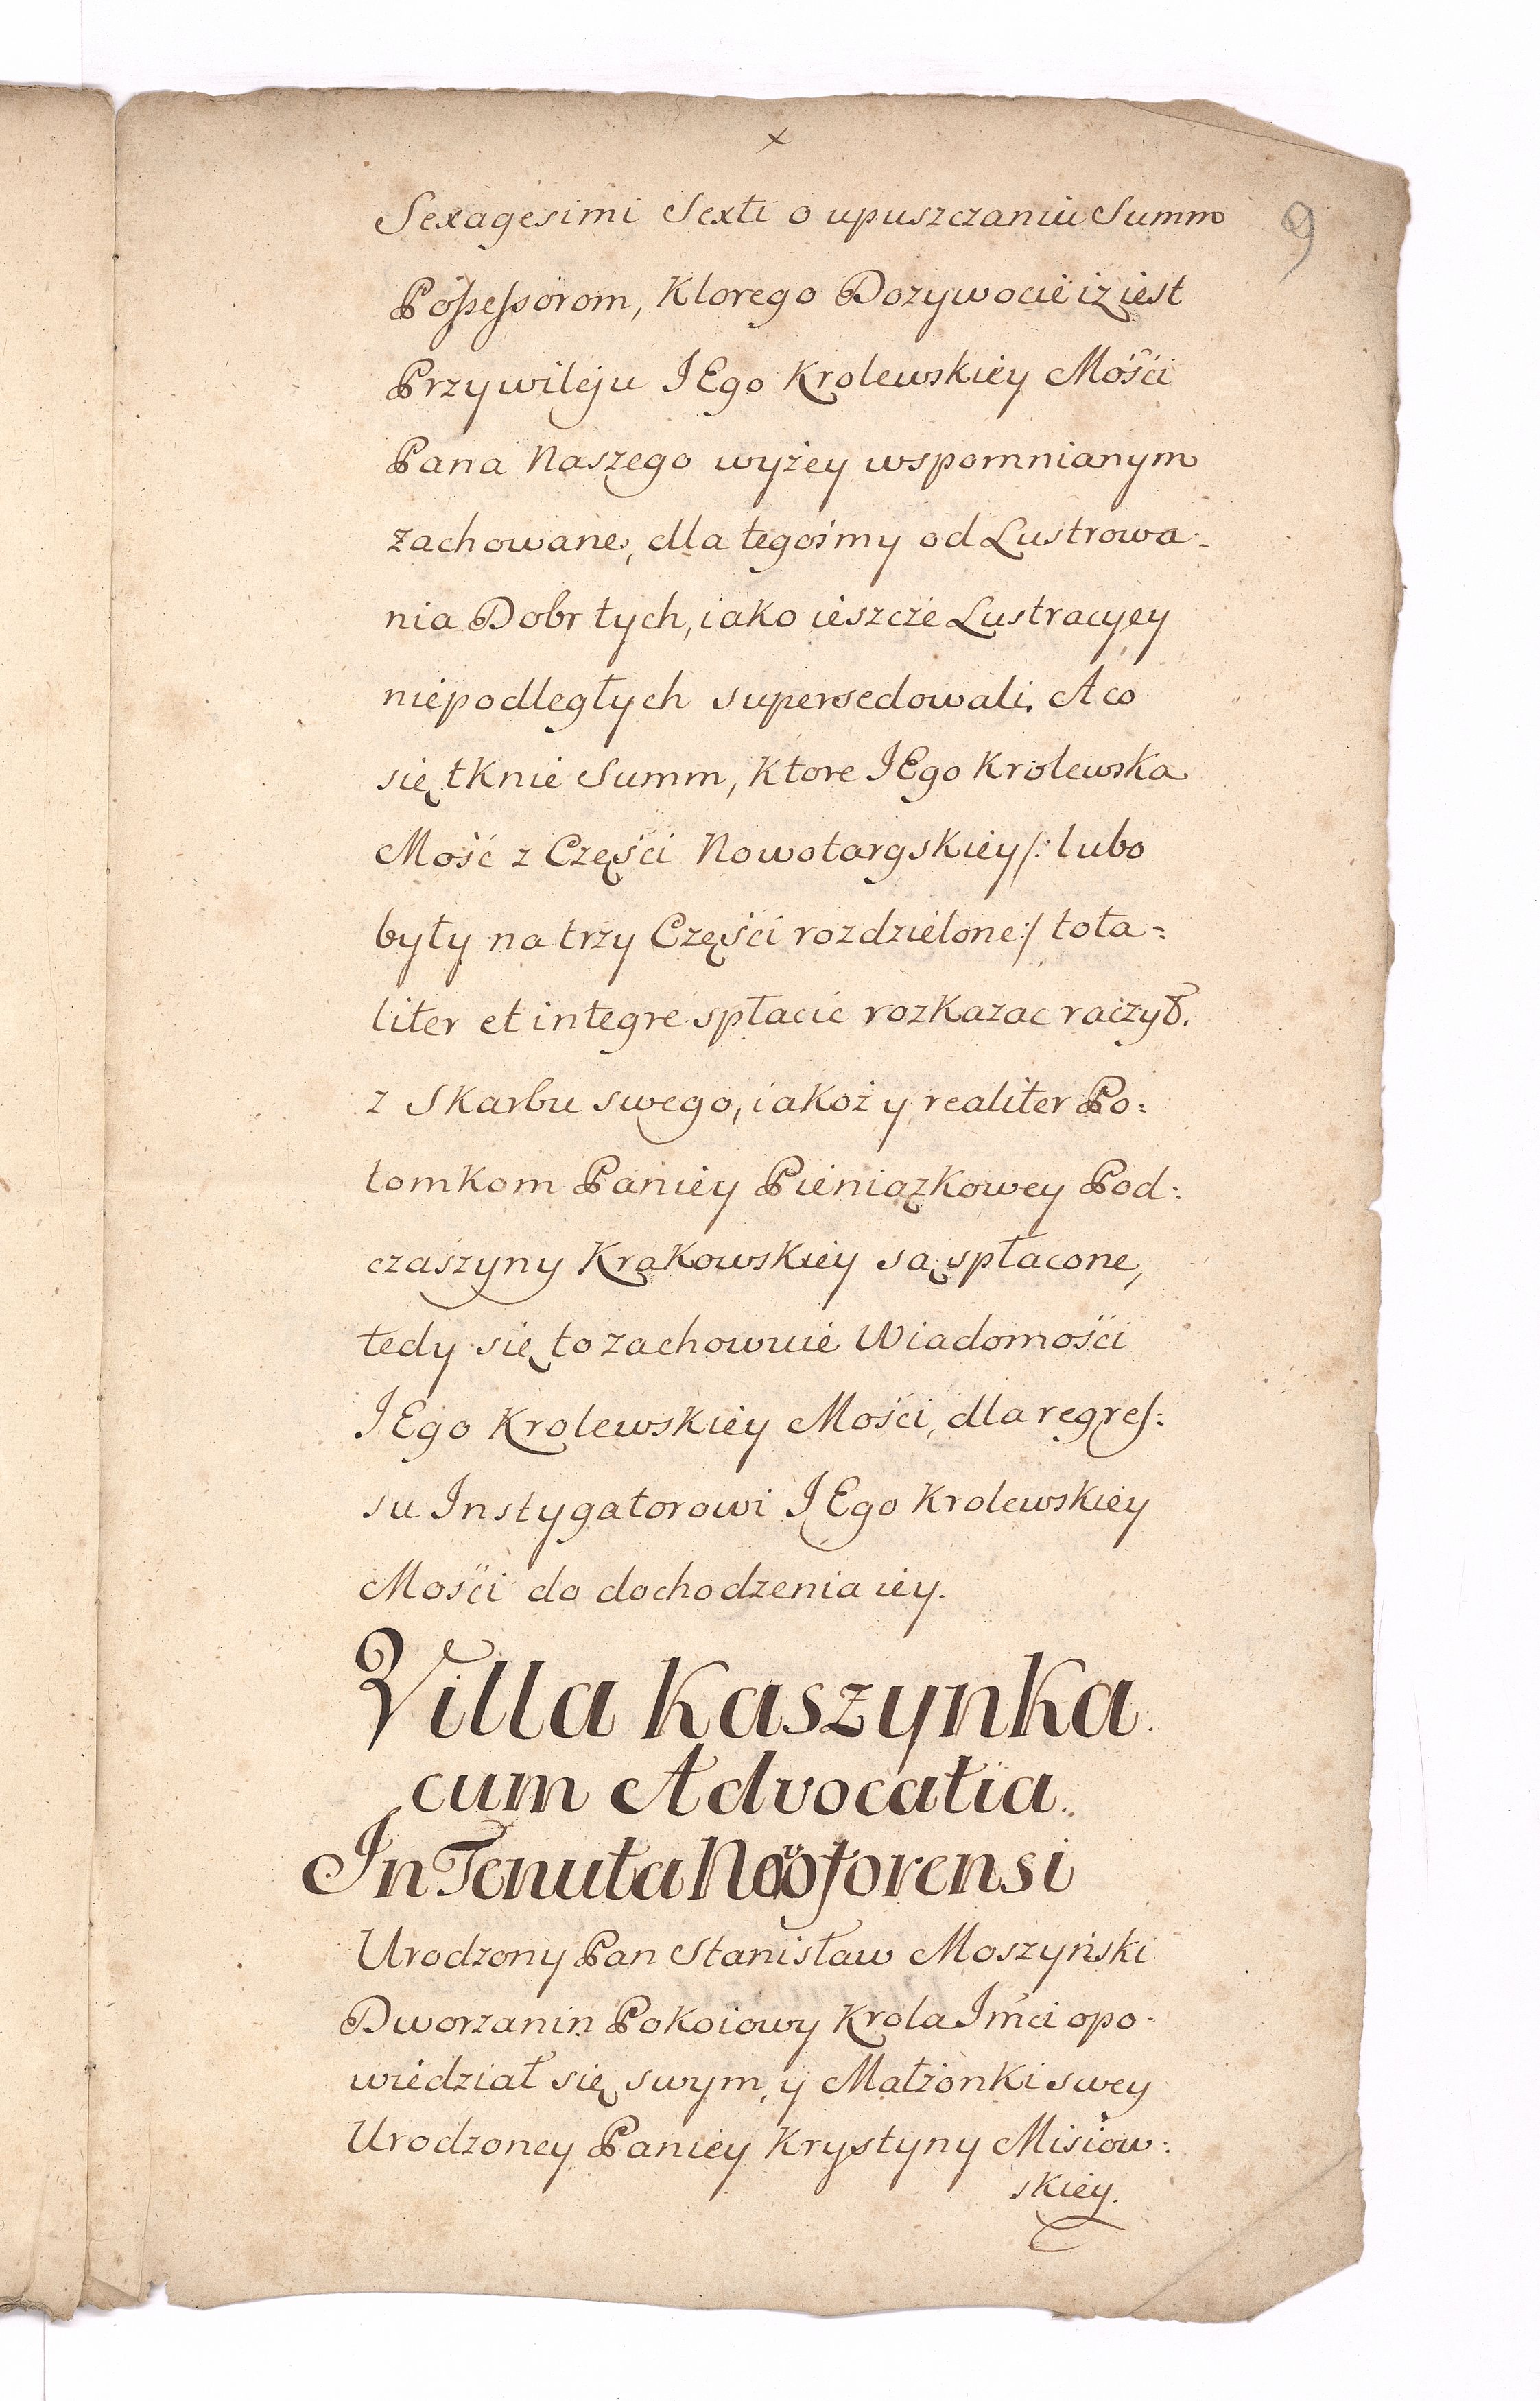 x
9
Sexagesimi Sexti o upuszczaniu Summ
Possessorom, Ktorego Dozywocie iz iest
Przywileju JEgo Krolewskiey Mości
Pana Naszego wyżey wspomnianym
zachowane, dla tegosmy od Lustrowa-
nia Dobr tych, iako ieszcze Lustracyey
niepodległych supersedowali. A co
się tknie Summ, Ktore JEgo Krolewska
Mość z Części Nowotargskiey /: lubo
były na trzy Części rozdzielone :/ tota=
liter et integre spłacić rozkazac raczył.
z Skarbu swego, iakoż y realiter Po=
tomkom Paniey Pieniązkowey Pod=
czaszyny Krakowskiey są spłacone,
tedy się to zachowuie Wiadomości
JEgo Krolewskiey Mości, dla regres=
su Instygatorowi JEgo Krolewskiey
Mości do dochodzenia iey.
Villa Kaszynka
cum Advocatia.
In Tenuta Novoforensi
Urodzony Pan Stanisław Moszyński
Dworzanin Pokoiowy Krola Jmci opo-
wiedział się swym, y Małżonki swey
Urodzoney Paniey Krystyny Misiow=
skiey.